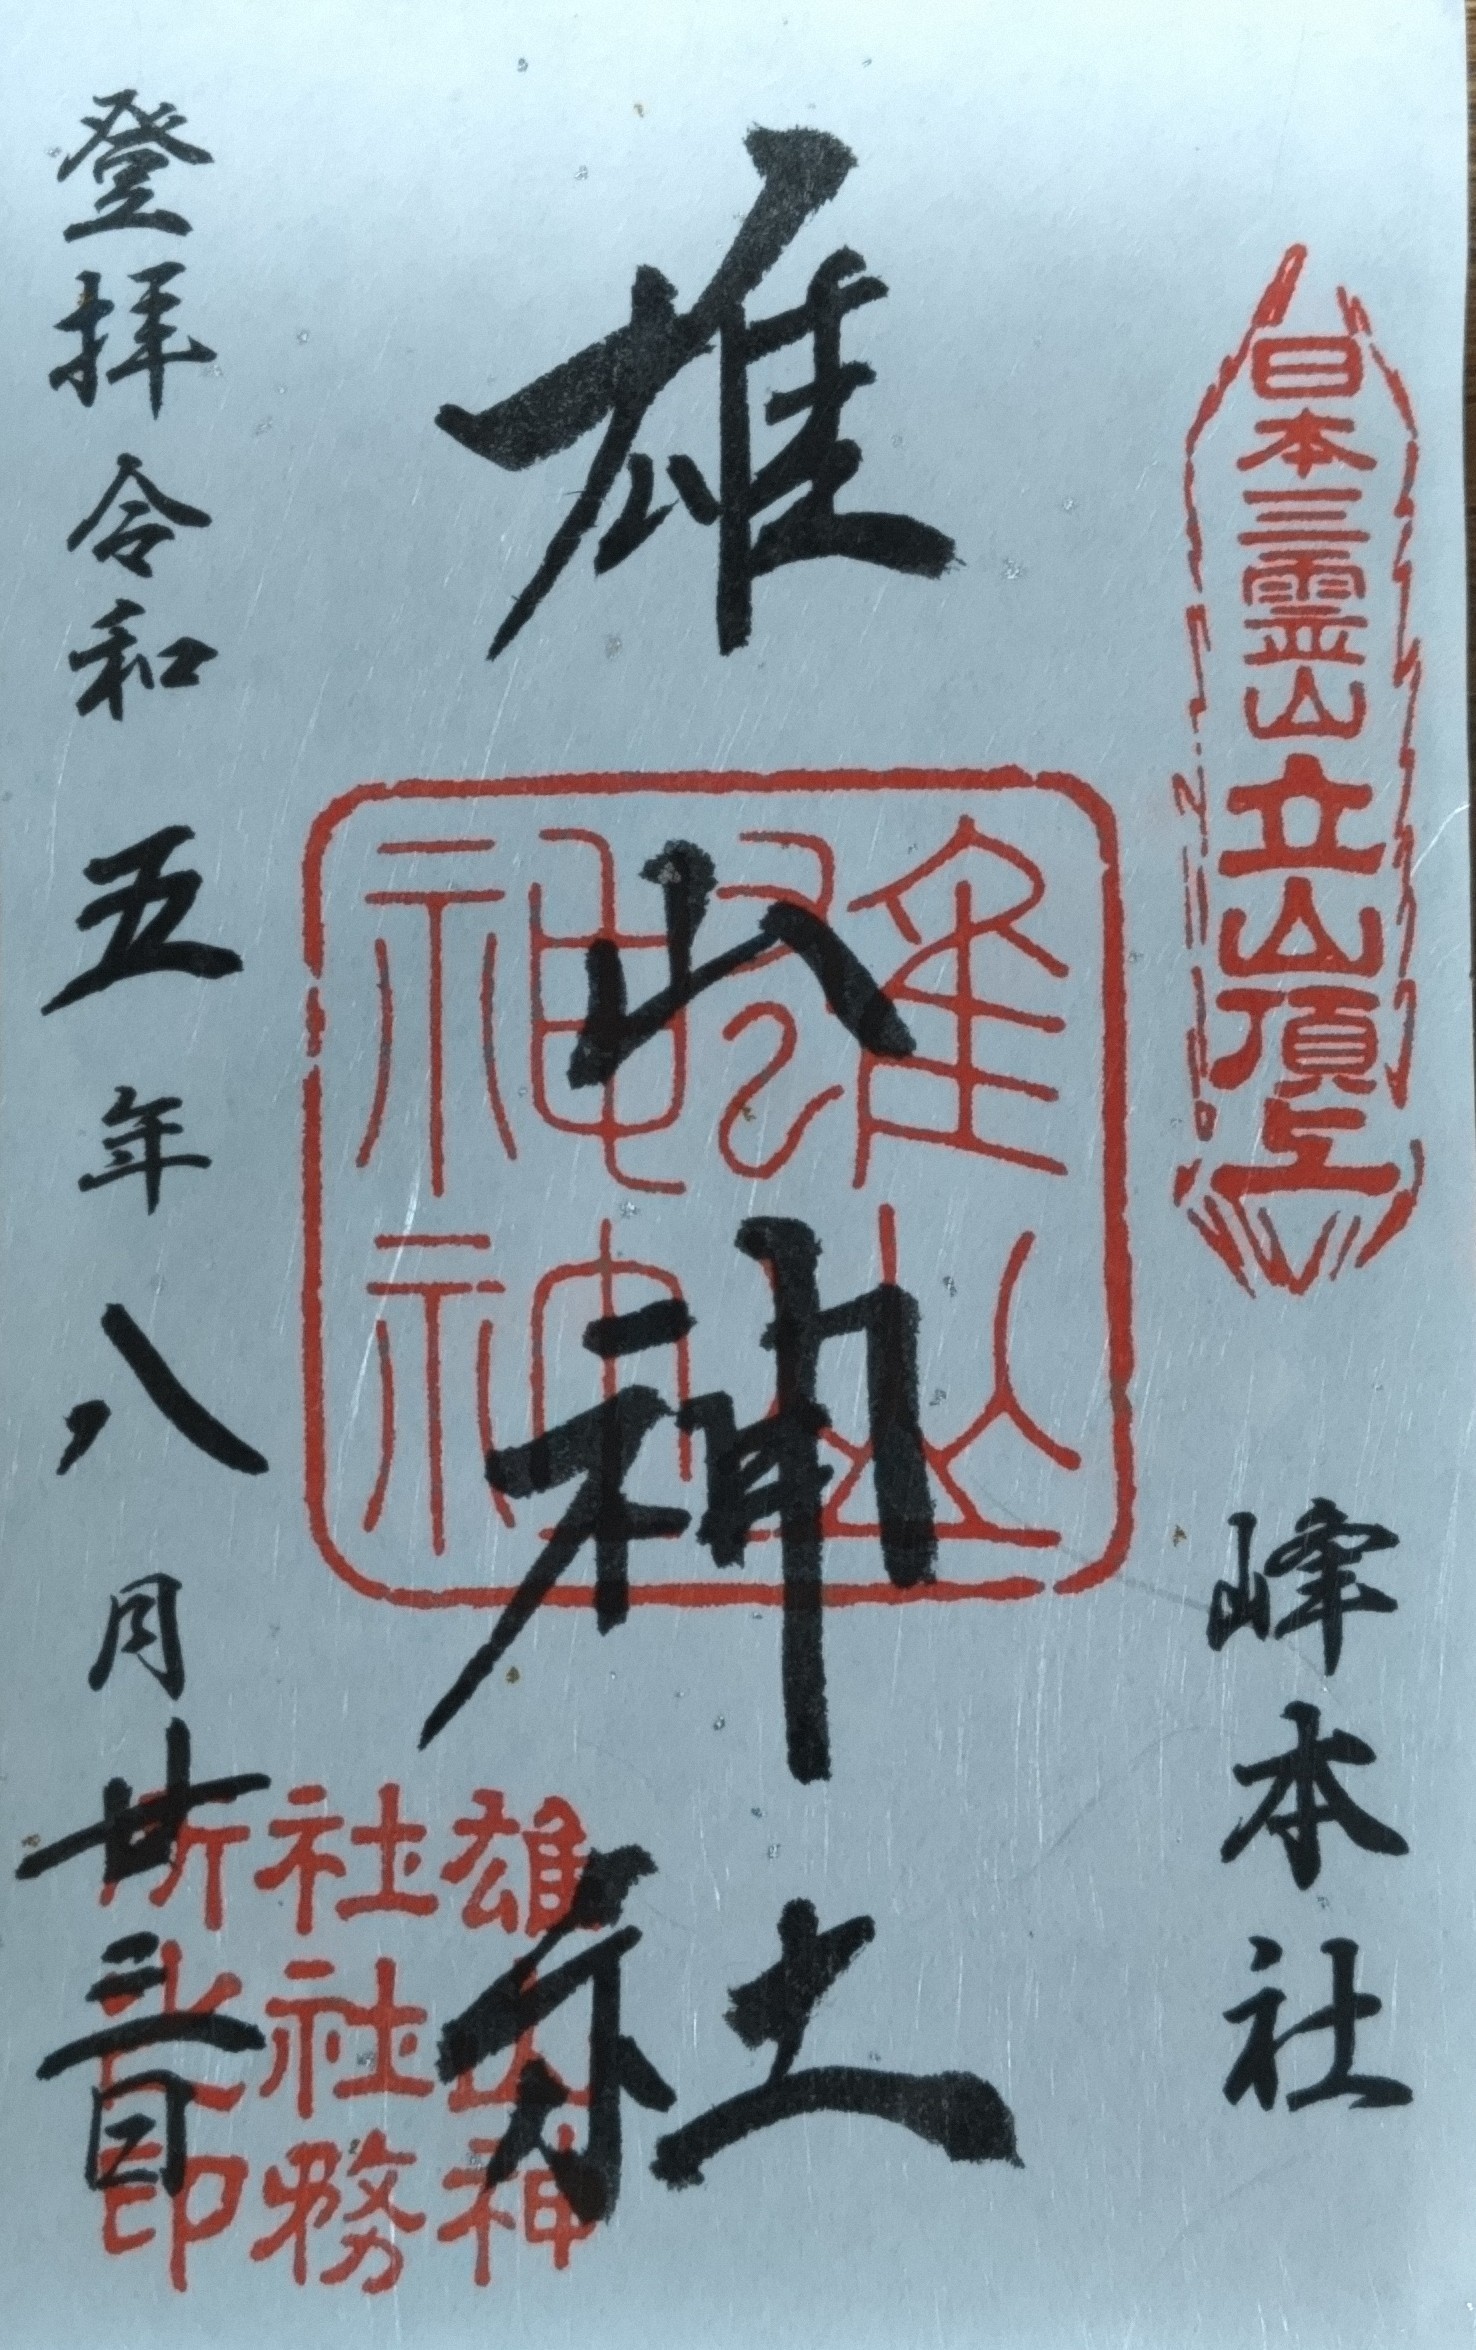 日本三霊山立山頂上
峰本社
雄山神社
雄山神神
雄山神
社社務
所之印
登拝令和五年八月廿三日